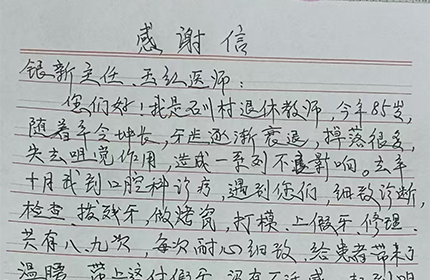 感谢信
银新主任、玉红医师：
您们好！我是石川村退休教师，今年85岁，
随着年令增长，牙齿逐渐衰退，掉落很多，
失去咀嚼作用，造成一系列不良影响。去年
十月我到口腔科诊疗，遇到您们，细致诊断，
检查、拔残牙，做烤瓷，打模、上假牙、修理、
共有八、九次，每次耐心细致，给患者带来了
温暖。带上这付假牙，没有不适感